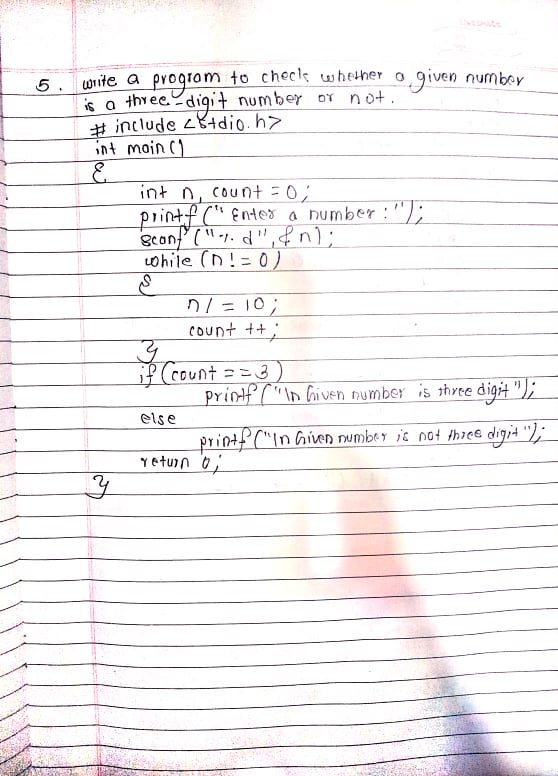 5. write a program to check whether a given number
is a three-digit number or not.
# include <stdio.h>
int main()
{
int n, count = 0;
printf ("Enter a number :");
scanf ("%d", &n);
while (n != 0)
{
n/ = 10;
count ++;
}
if (count == 3)
printf ("\n Given number is three digit");
else
printf ("\n Given number is not three digit");
return 0;
}